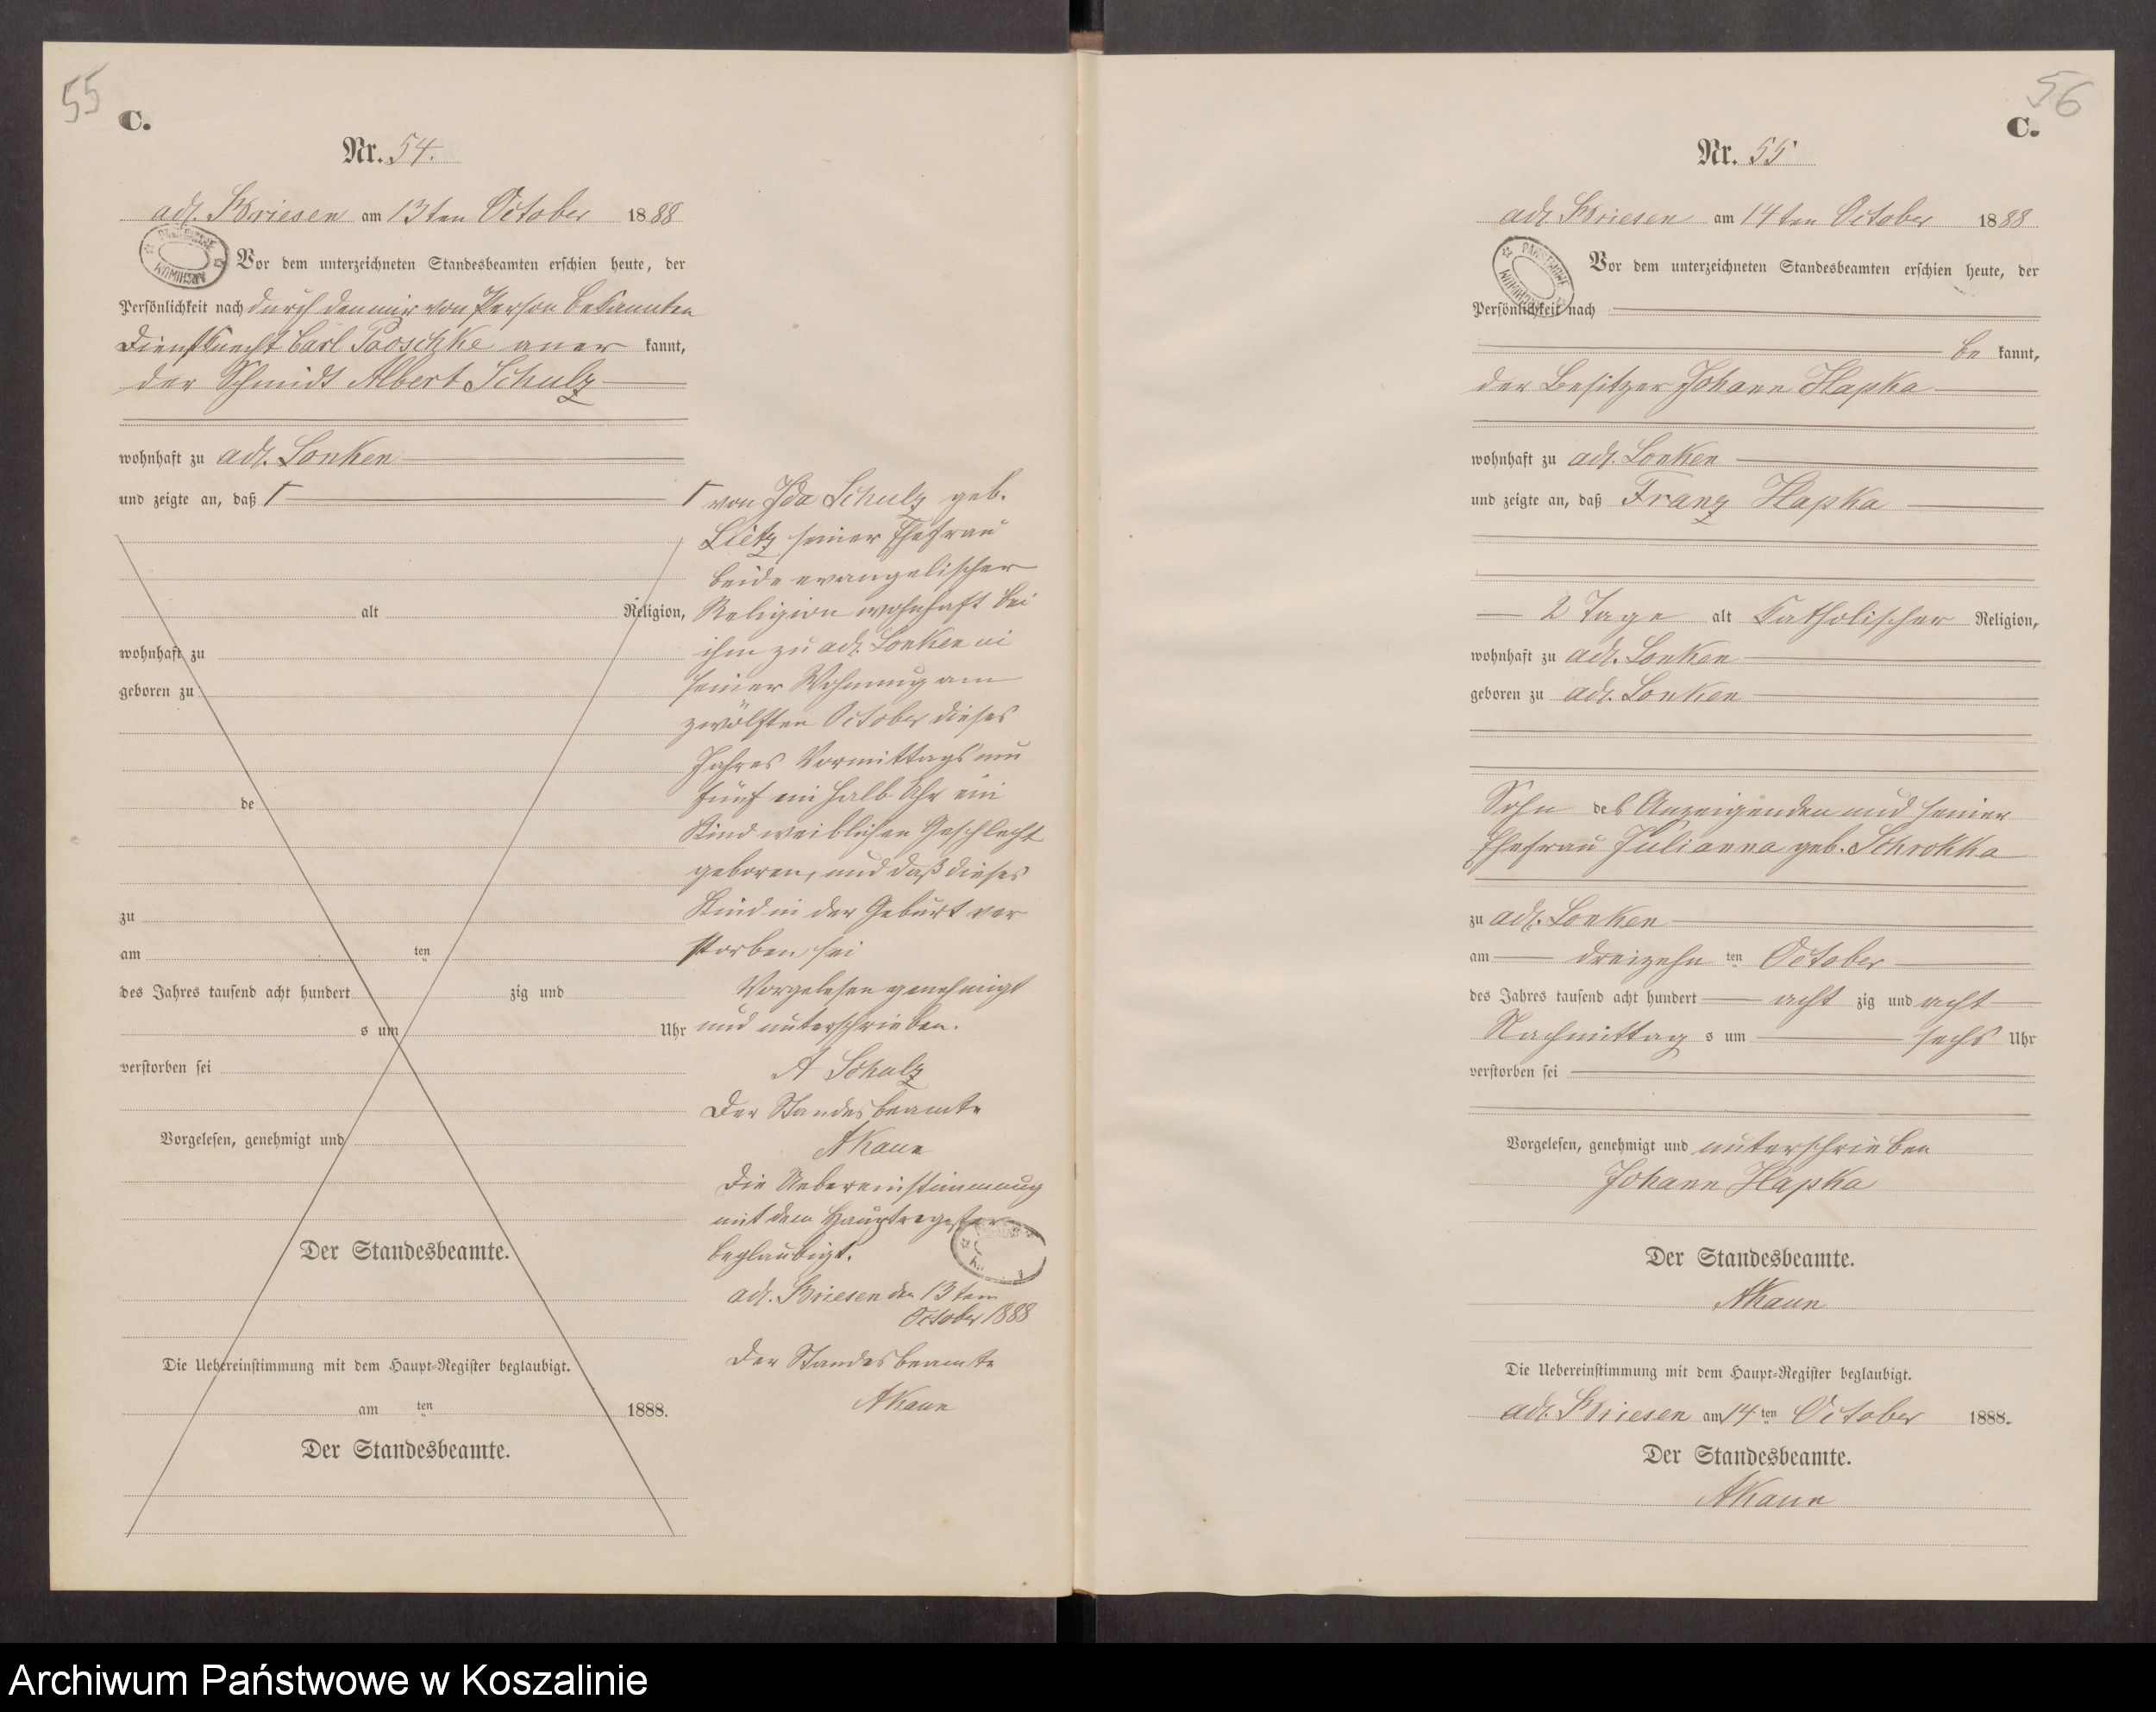 55
C.
Nr. 54.
adl. Briesen am 13ten October 1888
Vor dem unterzeichneten Standesbeamten erschien heute, der
Persönlichkeit nach durch den mir von Person bekannten
Dienstknecht Carl Paoschke aner kannt,
der Schmidt Albert Schulz
wohnhaft zu adl. Lonken
und zeigte an, daß
alt Religion,
wohnhaft zu
geboren zu
de
zu
am ten
des Jahres tausend acht hundert zig und
s um Uhr
verstorben sei
Vorgelesen, genehmigt und
Der Standesbeamte.
Die Uebereinstimmung mit dem Haupt-Register beglaubigt.
am ten 1888.
Der Standesbeamte.
von Ida Schulz geb.
Lietz seiner Ehefrau
beide evangelischer
Religion wohnhaft bei
ihm zu adl. Lonken in
seiner Wohnung am
zwölften October dieses
Jahres Vormittags um
fünf ein halb Uhr ein
Kind weiblichen Geschlecht
geboren, und daß dieses
Kind in der Geburt ver
storben sei
Vorgelesen genehmigt
und unterschrieben.
A Schulz
Der Standesbeamte
AKaun
Die Uebereinstimmung
mit dem Hauptregister
beglaubigt.
adl. Briesen den 13ten
October 1888
Der Standesbeamte
AKaun
56
C.
Nr. 55
adl. Briesen am 14ten October 1888
Vor dem unterzeichneten Standesbeamten erschien heute, der
Persönlichkeit nach
be kannt,
der Besitzer Johann Hapka
wohnhaft zu adl. Lonken
und zeigte an, daß Franz Hapka
2 Tage alt Katholischer Religion,
wohnhaft zu adl. Lonken
geboren zu adl. Lonken
Sohn des Anzeigenden und seiner
Ehefrau Julianna geb. Schrokka
zu adl. Lonken
am dreizehn ten October
des Jahres tausend acht hundert acht zig und acht
Nachmittag s um sechs Uhr
verstorben sei
Vorgelesen, genehmigt und unterschrieben
Johann Hapka
Der Standesbeamte.
AKaun
Die Uebereinstimmung mit dem Haupt-Register beglaubigt.
adl. Briesen am 14 ten October 1888.
Der Standesbeamte.
AKaun
Archiwum Państwowe w Koszalinie